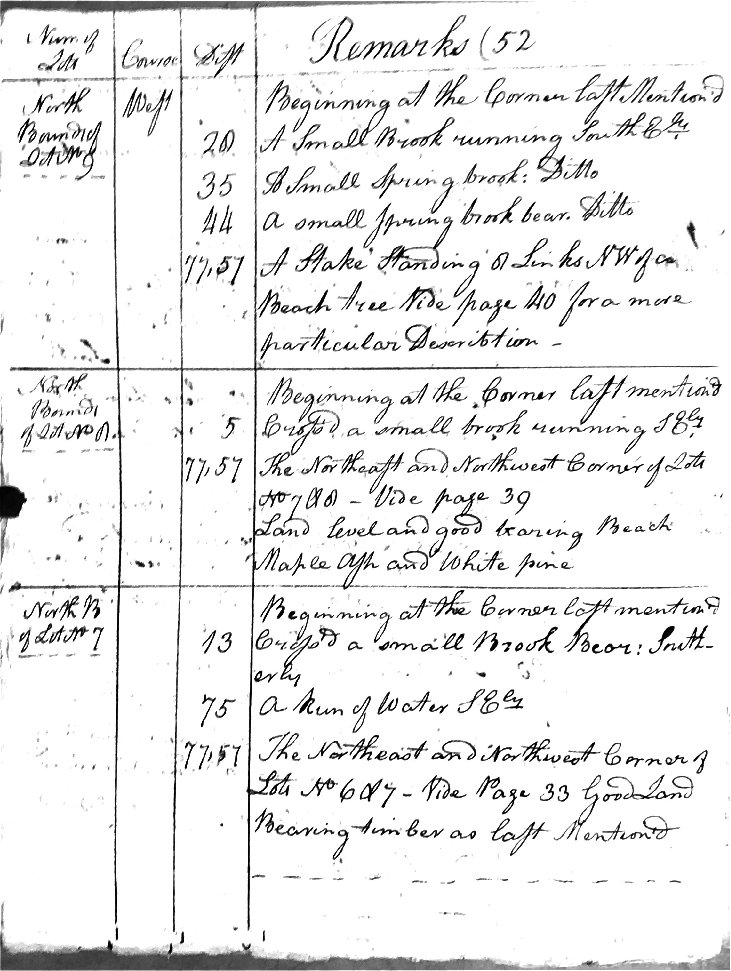 Num. of Lots Course Dist Remarks (52
North Bounds of Lot No 9 West Beginning at the Corner last Mention'd
28 A Small Brook running South Ely.
35 A Small Spring brook: Ditto
44 A small spring brook bear. Ditto
77,57 A Stake Standing 8 Links NW of a
Beach tree Vide page 40 for a more
particular Describtion -
North Bounds of Lot No 8. Beginning at the Corner last mention'd
5 Cross'd a small brook running S Ely.
77,57 The Northeast and Northwest Corner of Lots
No 7 & 8 - Vide page 39
Land level and good bearing Beach
Maple Ash and White pine
North B of Lot No 7 Beginning at the Corner last mention'd
13 Cross'd a small Brook Bear: South-
erly
75 A Run of Water S Ely
77,57 The Northeast and Northwest Corner of
Lots No 6 & 7 - Vide Page 33 Good Land
Bearing timber as last Mention'd